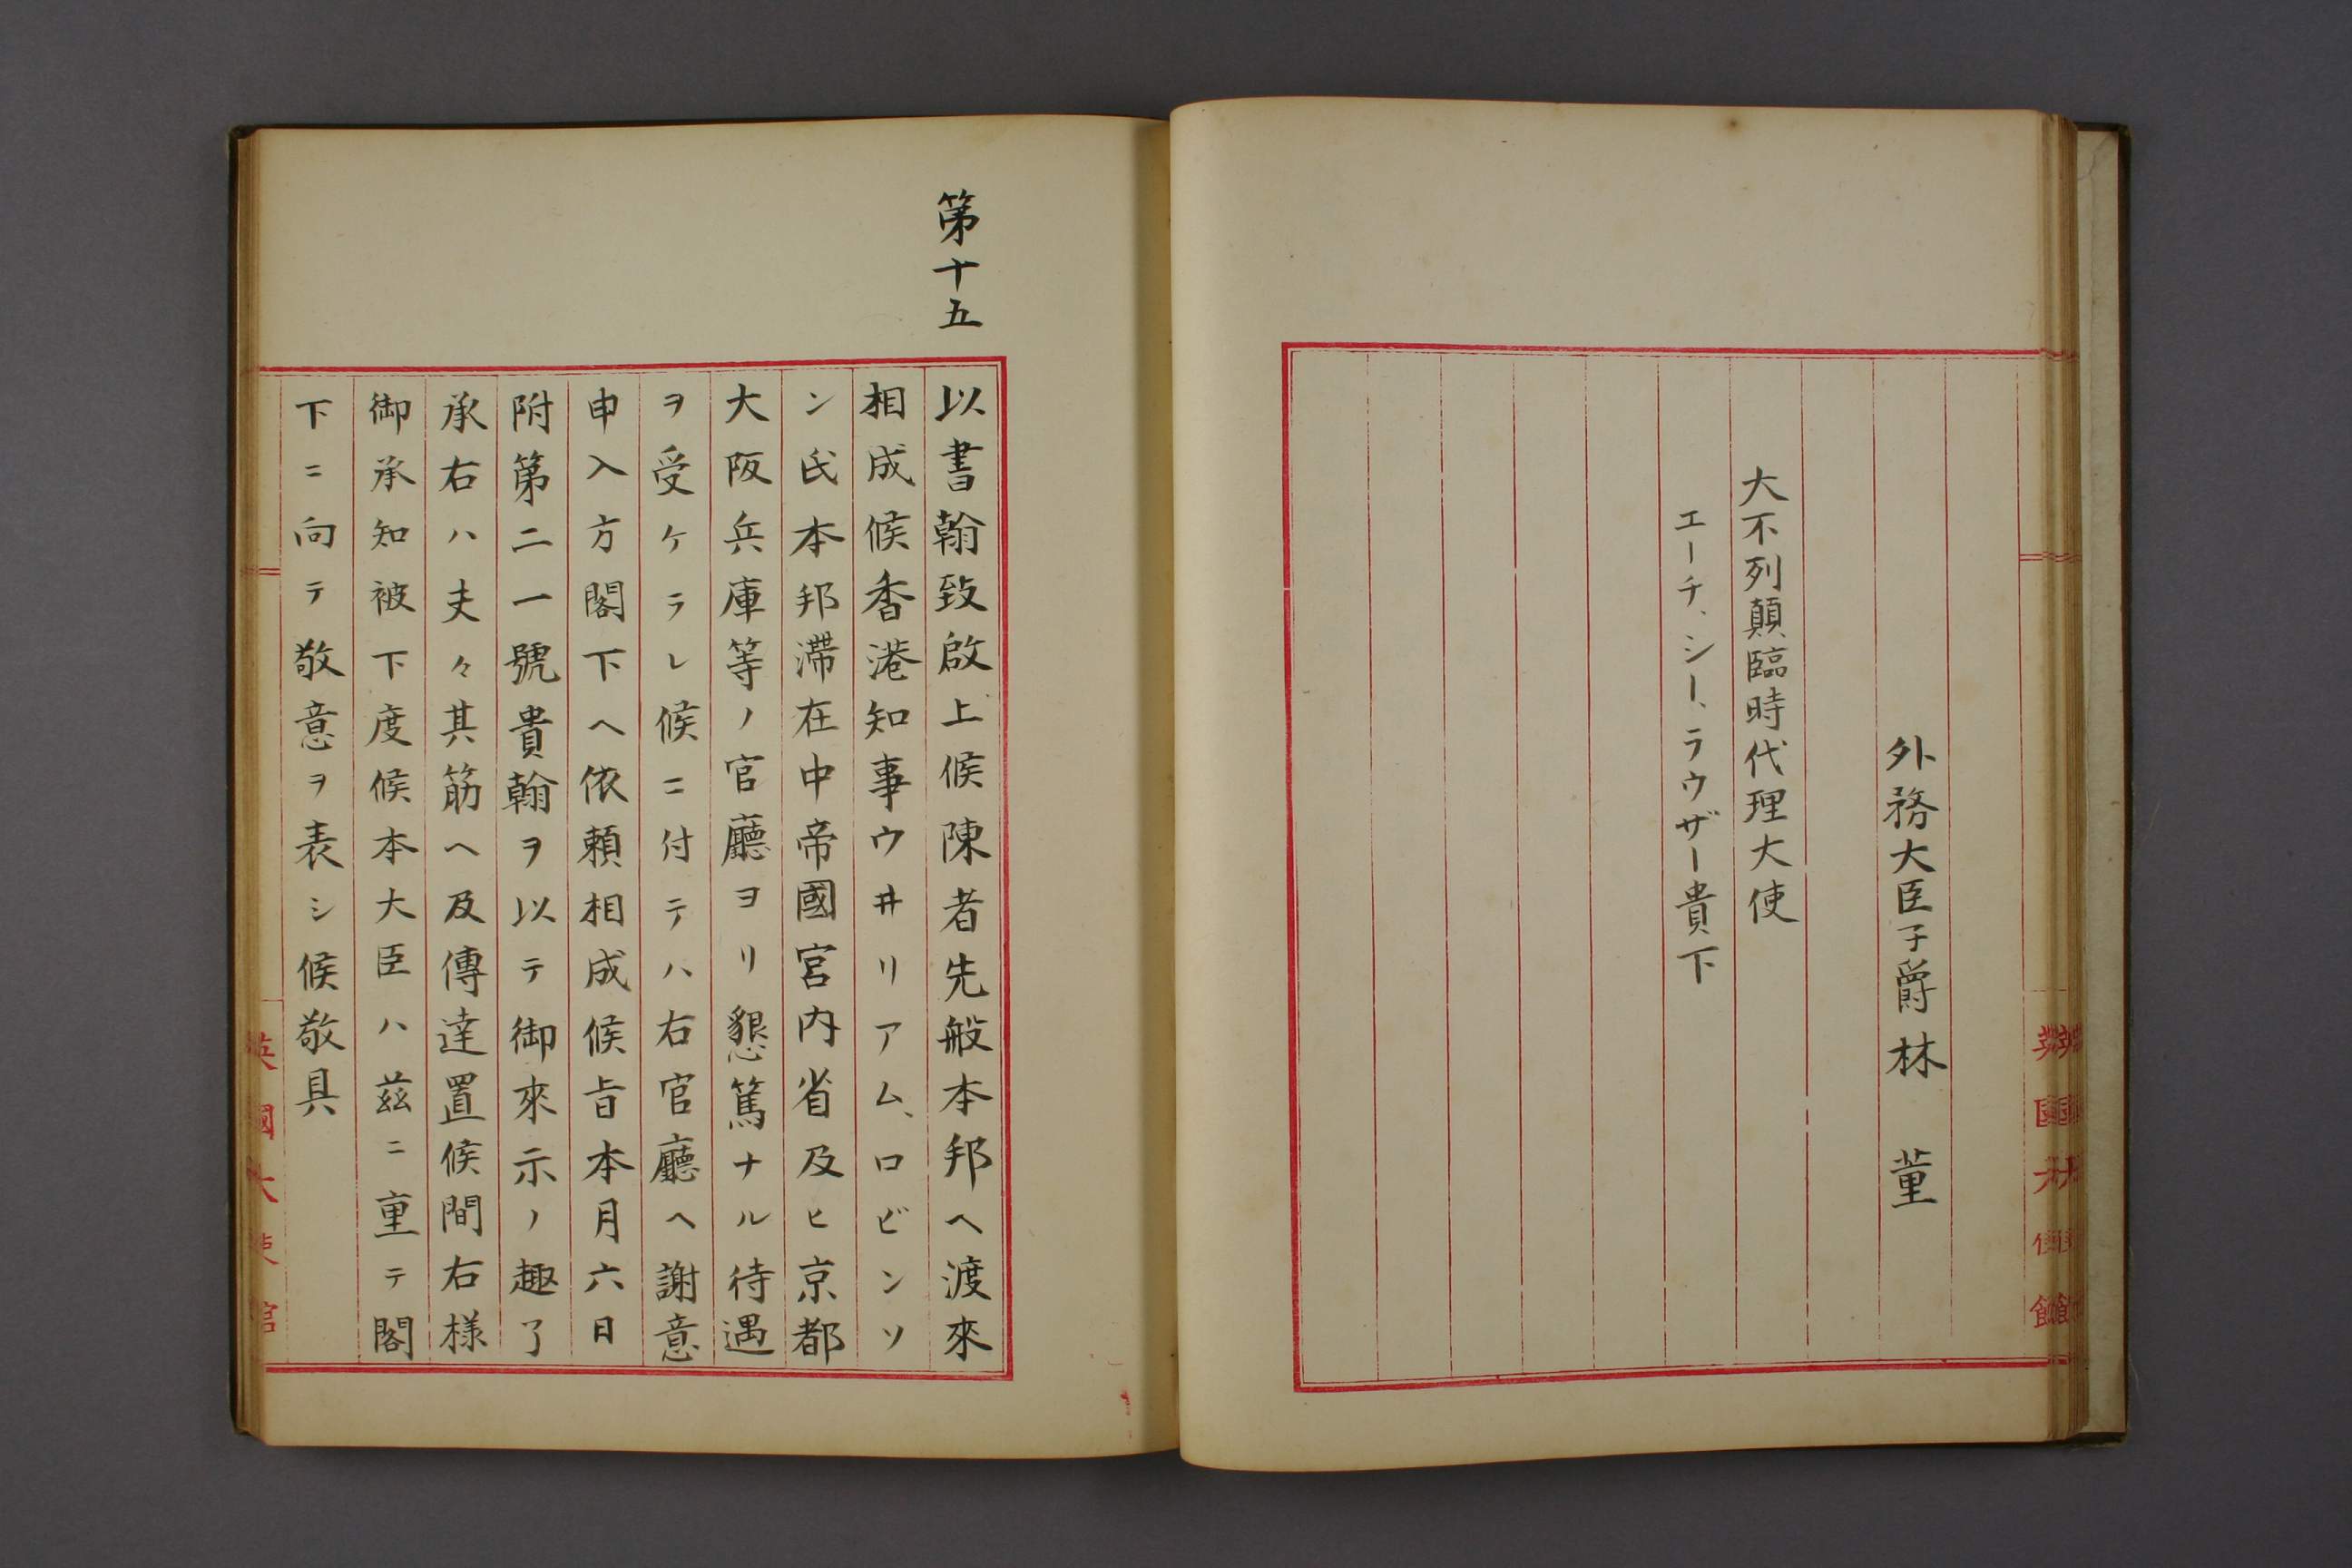 外務大臣子爵林 董
大不列顛臨時代理大使
エーチ、シー、ラウザー貴下
第十五
以書翰致啟上候陳者先般本邦ヘ渡來
相成候香港知事ウ井リアム、ロビンソ
ン氏本邦滯在中帝國宮内省及ヒ京都
大阪兵庫等ノ官廳ヨリ懇篤ナル待遇
ヲ受ケラレ候ニ付テハ右官廳ヘ謝意
申入方閣下ヘ依頼相成候旨本月六日
附第二一號貴翰ヲ以テ御來示ノ趣了
承右ハ夫々其筋ヘ及傳達置候間右様
御承知被下度候本大臣ハ茲ニ重テ閣
下ニ向テ敬意ヲ表シ候敬具
英國大使館